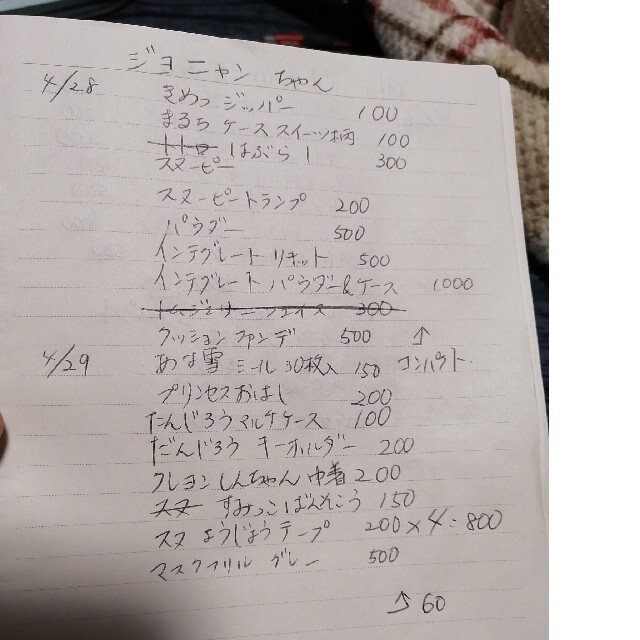 ジョニャン ちゃん
4/28 きめつ ジッパー 100
まるち ケース スイーツ柄 100
トトロ はぶらし 300
スヌーピー
スヌーピートランプ 200
パウダー 500
インテグレート リキット 500
インテグレート パウダー&ケース 1000
トムジェリー フェイス 300
クッション ファンデ 500 ↑
4/29 あな雪 シール 30枚入 150 コンパクト
プリンセスおはし 200
たんじろう マルチケース 100
だんじろう キーホルダー 200
クレヨンしんちゃん 巾着 200
スヌ すみっこばんそこう 150
スヌ ようじょうテープ 200×4=800
マスクフリル グレー 500
↑60